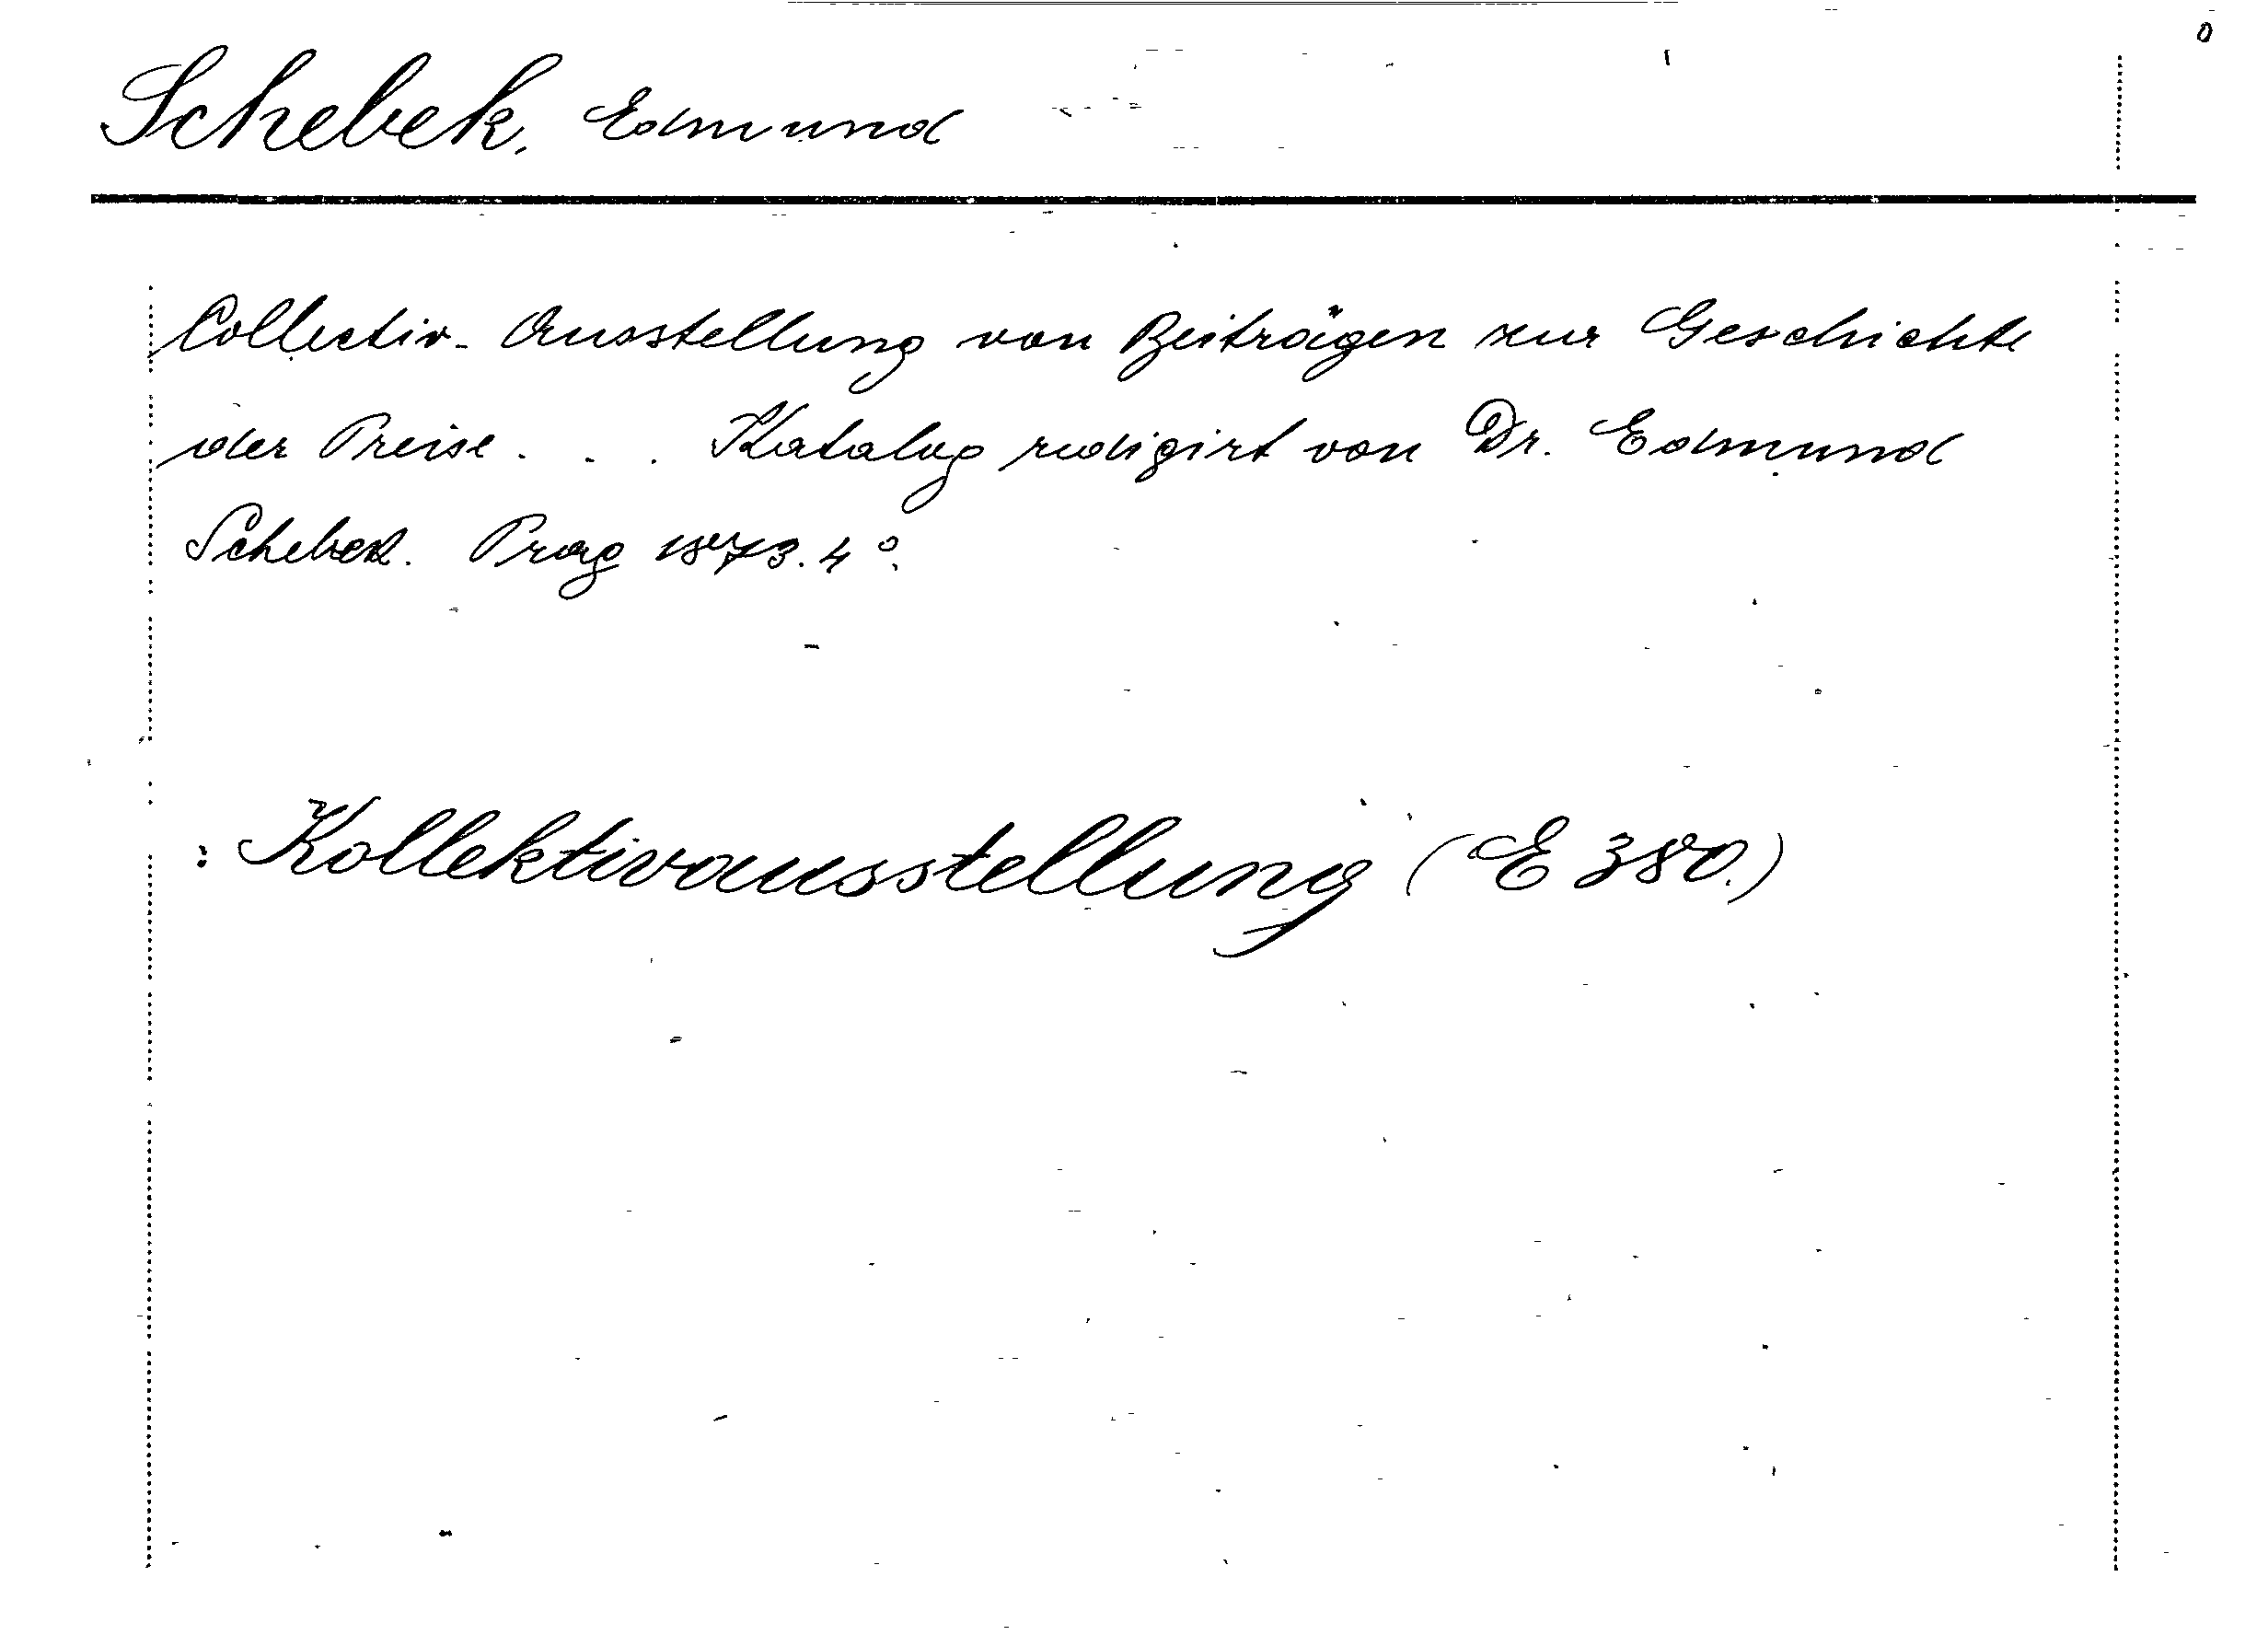 Schebek, Edmund
Collectiv-Ausstellung von Beiträgen zur Geschichte
der Preise. . . Katalog redigirt von Dr. Edmund
Schebek. Prag 1873. 4°.
: Kollektivausstellung (E 380.)